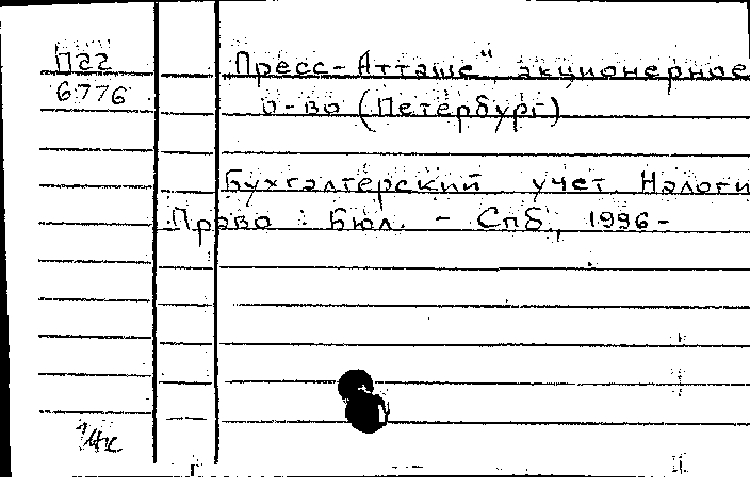 П22
6776
Пресс-Атташе", акционерное
о-во (Петербург)
Бухгалтерский учет. Налоги
Право : Бюл. - Спб., 1996-